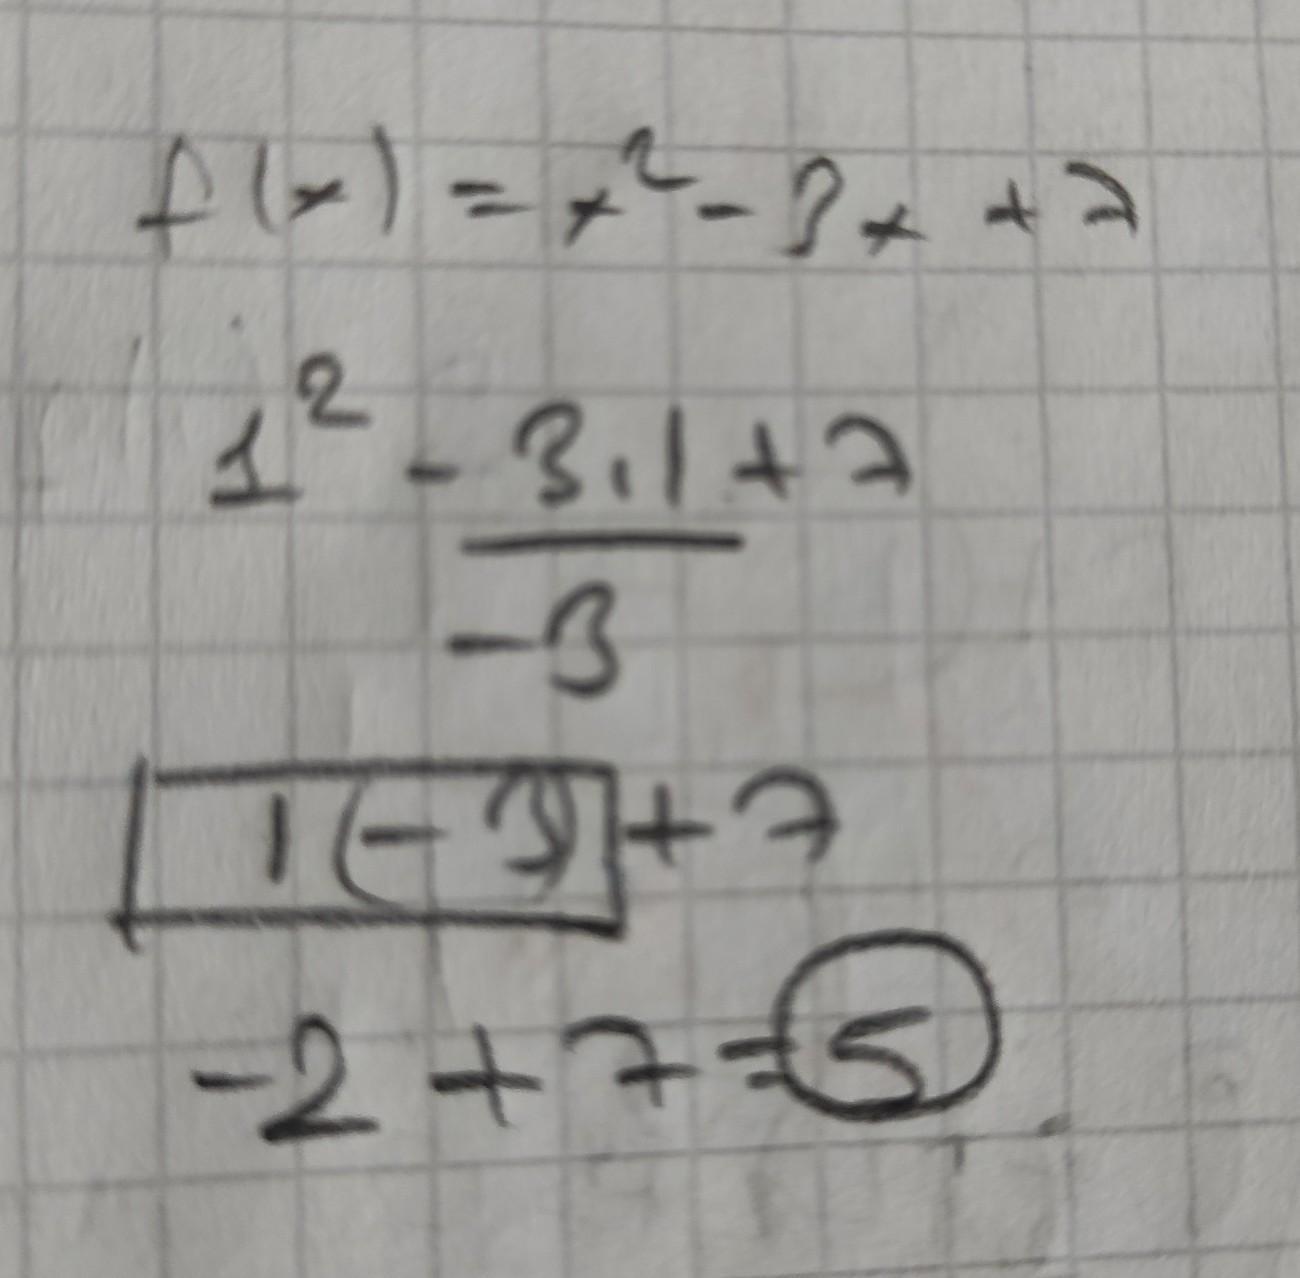 f(x) = x² - 3x + 7
1² - 3.1 + 7
-3
1(-3) + 7
-2 + 7 = 5